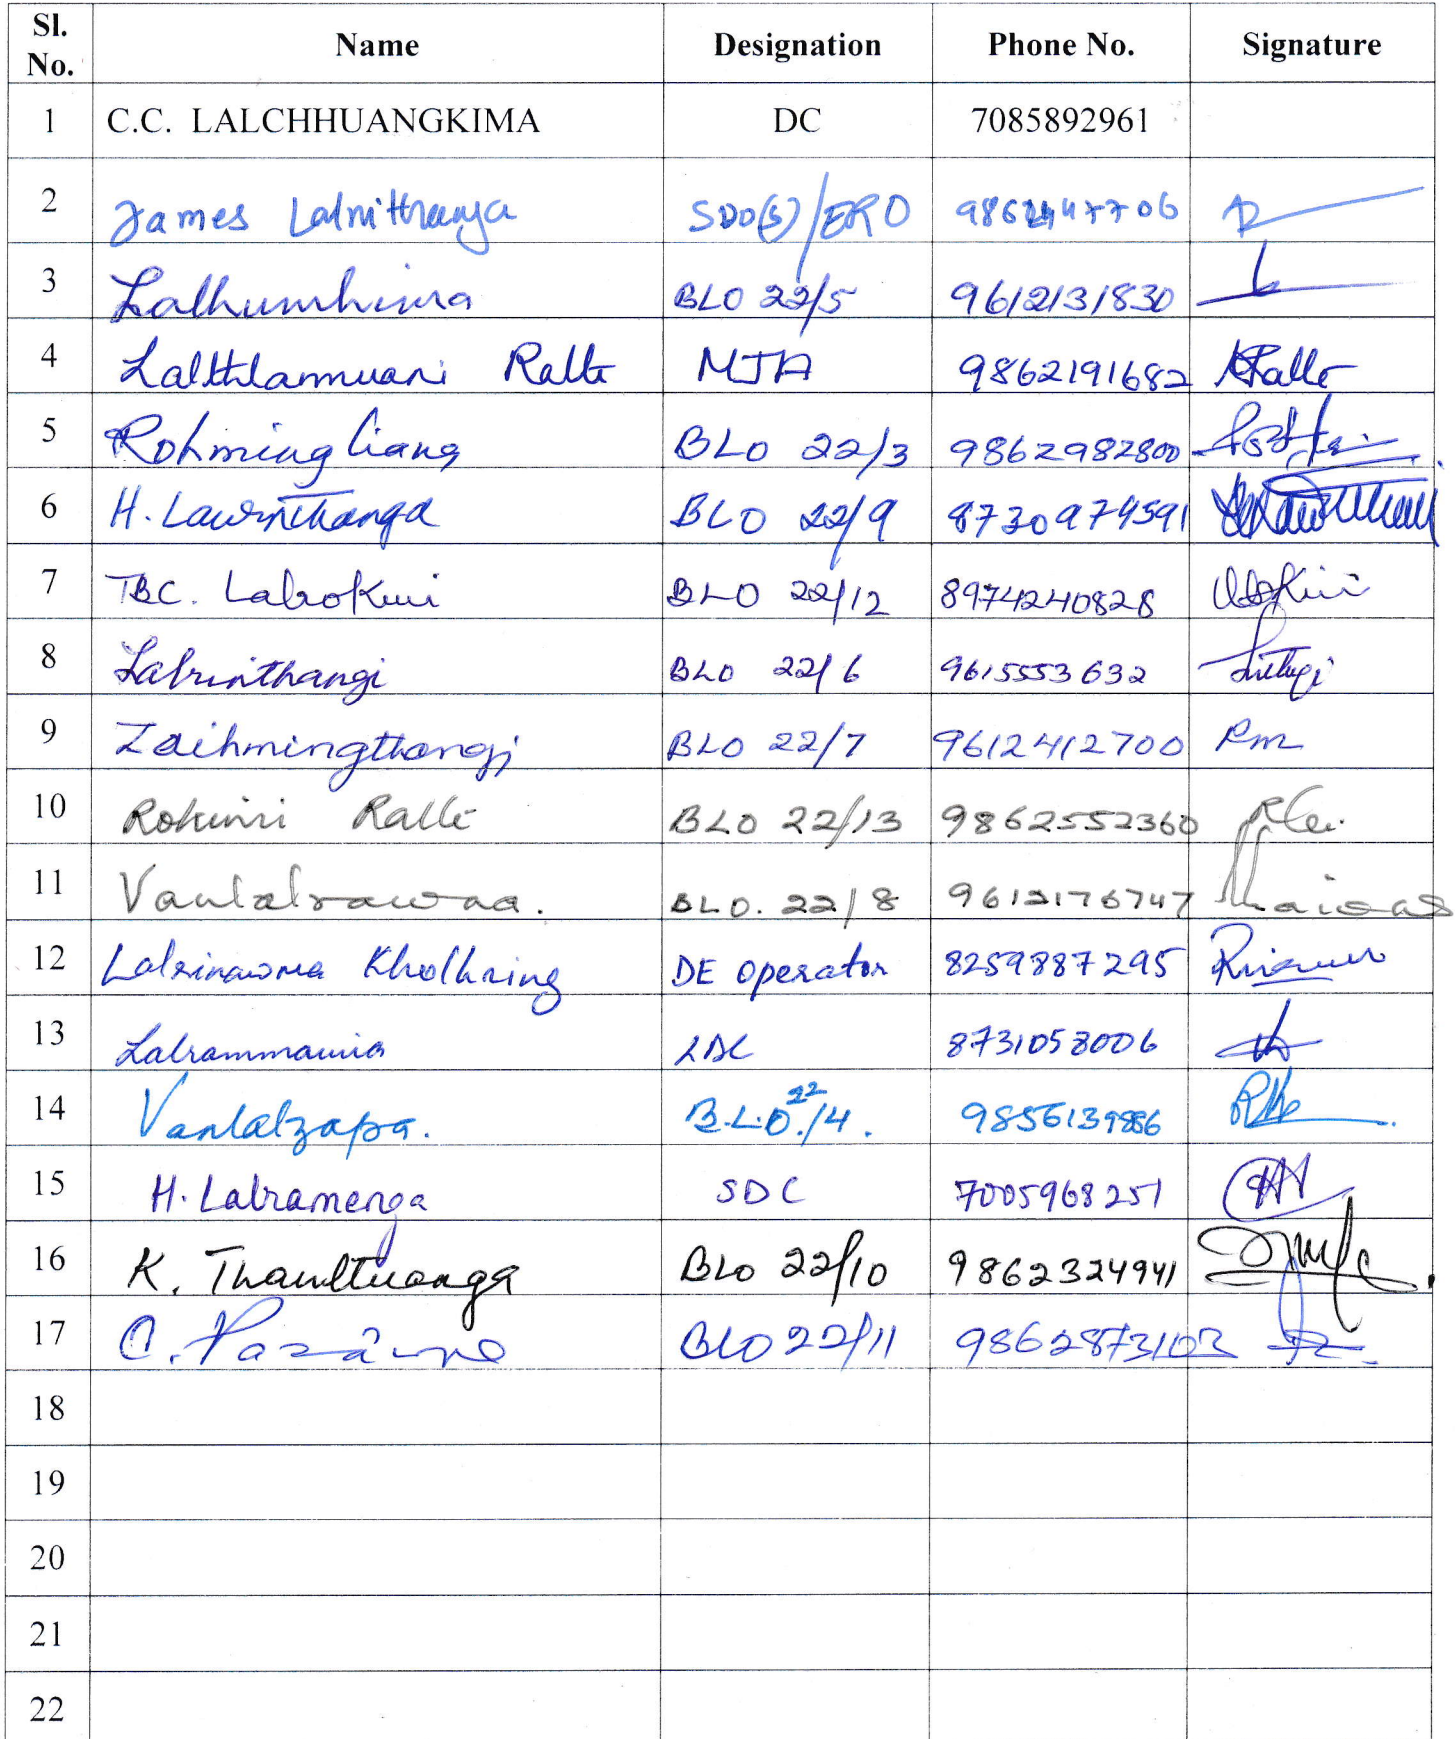 Sl. No. Name Designation Phone No. Signature
1 C.C. LALCHHUANGKIMA DC 7085892961
2 James Lalnithanga SDO(S)/ERO
3 Lalhumhima BLO 22/5 9612131830
4 Lalthlanmuani Ralte MJA 9862191682 Ralte
5 Rohmingliana BLO 22/3 9862982800
6 H. Lawmthanga BLO 22/9 8730979591
7 TBC. Lalrokimi BLO 22/12 8974240828
8 Lalrinthangi BLO 22/6 9615553632
9 Zaihmingthangi BLO 22/7 9612412700
10 Rokimi Ralte BLO 22/13 9862552360
11 Vanlalrawna. BLO. 22/8 9612176747
12 Lalrinawma Kholhring DE operator 8259887295
13 Lalrammawia LDC 8731058006
14 Vanlalzapa. B.L.O. 22/4. 9856139886
15 H. Lalramenga SDC 7005968251
16 K. Thawltuanga BLO 22/10 9862324941
17 BLO 22/11
18
19
20
21
22